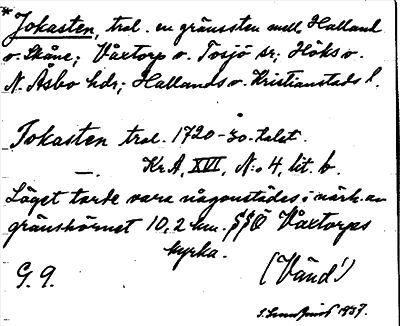 * Jokasten, trol. en gränssten mell. Halland
o. Skåne; Våxtorp o. Tosjö sr; Höks o.
N. Åsbo hdr; Hallands o. Kristianstads l.
Tokasten trol. 1720-30-talet.
—. Kr.A. XVI, N:o 4, lit. b.
Läget torde vara någonstädes i närh. av
gränshörnet 10,2 km. SSÖ Våxtorps
kyrka.
G. 9. (Vänd!)
1937.